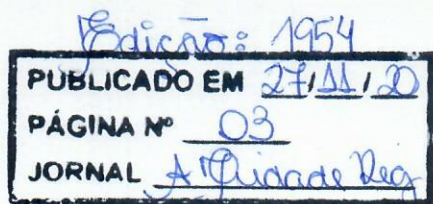 Edição: 1954
PUBLICADO EM 27/11/20
PÁGINA Nº 03
JORNAL A Cidade Reg